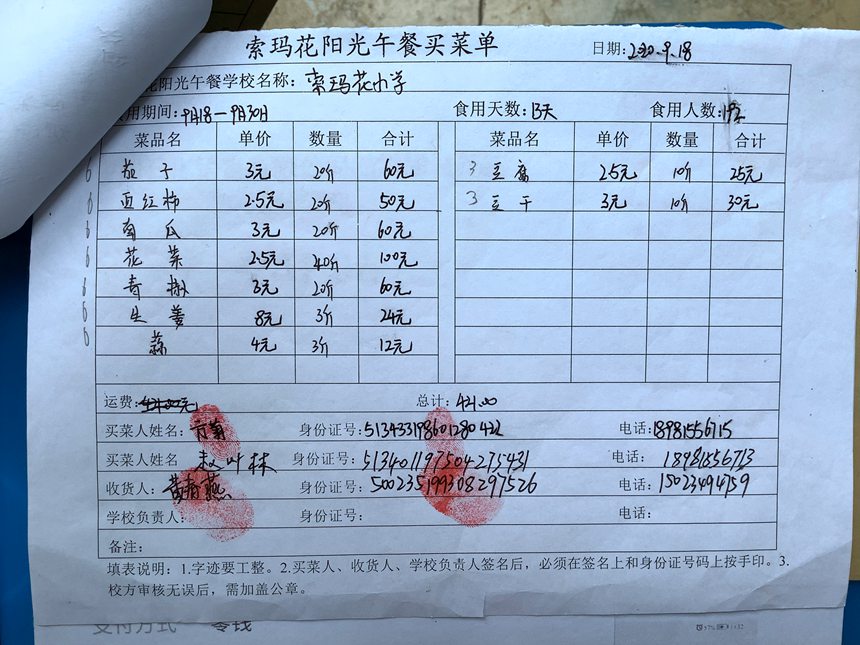 索玛花阳光午餐买菜单 日期:2020.9.18
花阳光午餐学校名称: 索玛花小学
用期间:9月18—9月30日 食用天数:13天 食用人数:
菜品名 单价 数量 合计 菜品名 单价 数量 合计
6 茄子 3元 20斤 60元 3 豆腐 2.5元 10斤 25元
6 西红柿 2.5元 20斤 50元 3 豆干 3元 10斤 30元
6 南瓜 3元 20斤 60元
6 花菜 2.5元 40斤 100元
6 青椒 3元 20斤 60元
6 生姜 8元 3斤 24元
6 蒜 4元 3斤 12元
运费: 总计:421.00
买菜人姓名: 身份证号:513433198601280422 电话:18981556715
买菜人姓名 赵叶林 身份证号:513401197504275431 电话: 18981556713
收货人:黄春燕 身份证号:500235199308297526 电话:15023494759
学校负责人: 身份证号: 电话:
备注:
填表说明:1.字迹要工整。2.买菜人、收货人、学校负责人签名后,必须在签名上和身份证号码上按手印。3.
校方审核无误后,需加盖公章。
支付方式 零钱